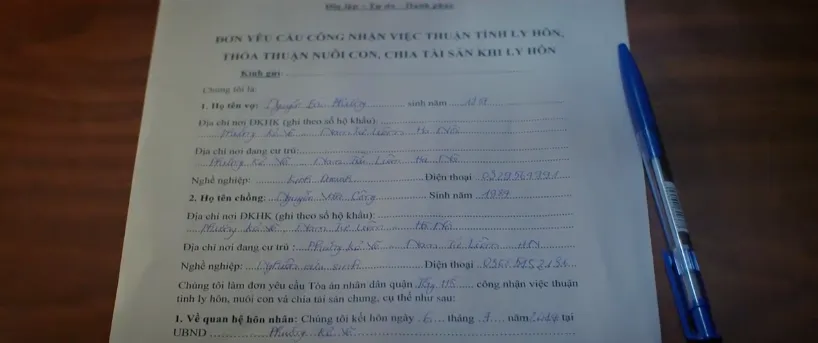 Độc lập – Tự do – Hạnh phúc
ĐƠN YÊU CẦU CÔNG NHẬN VIỆC THUẬN TÌNH LY HÔN,
THỎA THUẬN NUÔI CON, CHIA TÀI SẢN KHI LY HÔN
Kính gửi:
Chúng tôi là:
1. Họ tên vợ: Nguyễn Phương sinh năm
Địa chỉ nơi ĐKHK (ghi theo sổ hộ khẩu):
Phường Nam Từ Liêm Hà Nội
Địa chỉ nơi đang cư trú:
Phường Nam Từ Liêm Hà Nội
Nghề nghiệp: Kinh Doanh Điện thoại
2. Họ tên chồng: Nguyễn Công Sinh năm 1989
Địa chỉ nơi ĐKHK (ghi theo sổ hộ khẩu):
Phường Nam Từ Liêm Hà Nội
Địa chỉ nơi đang cư trú : Phường Nam Từ Liêm HN
Nghề nghiệp: Điện thoại
Chúng tôi làm đơn yêu cầu Tòa án nhân dân quận công nhận việc thuận
tình ly hôn, nuôi con và chia tài sản chung, cụ thể như sau:
1. Về quan hệ hôn nhân: Chúng tôi kết hôn ngày 6 tháng 7 năm tại
UBND Phường